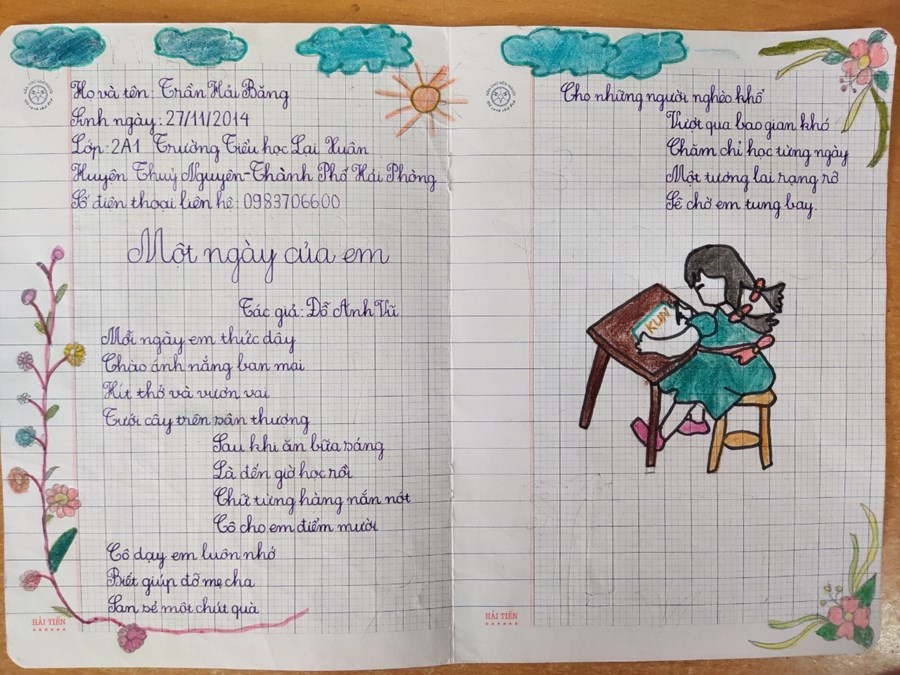 Họ và tên: Trần Hải Băng
Sinh ngày: 27/11/2014
Lớp: 2A1 Trường Tiểu học Lại Xuân
Huyện Thuỷ Nguyên-Thành Phố Hải Phòng
Số điện thoại liên hệ: 0983706600
Một ngày của em
Tác giả: Đỗ Anh Vũ
Mỗi ngày em thức dậy
Chào ánh nắng ban mai
Hít thở và vươn vai
Tưới cây trên sân thượng
Sau khi ăn bữa sáng
Là đến giờ học rồi
Chữ từng hàng nắn nót
Cô cho em điểm mười
Cô dạy em luôn nhớ
Biết giúp đỡ mẹ cha
San sẻ một chút quà
HẢI TIẾN
Cho những người nghèo khổ
Vượt qua bao gian khó
Chăm chỉ học từng ngày
Một tương lai rạng rỡ
Sẽ chờ em tung bay.
KUN
HẢI TIẾN